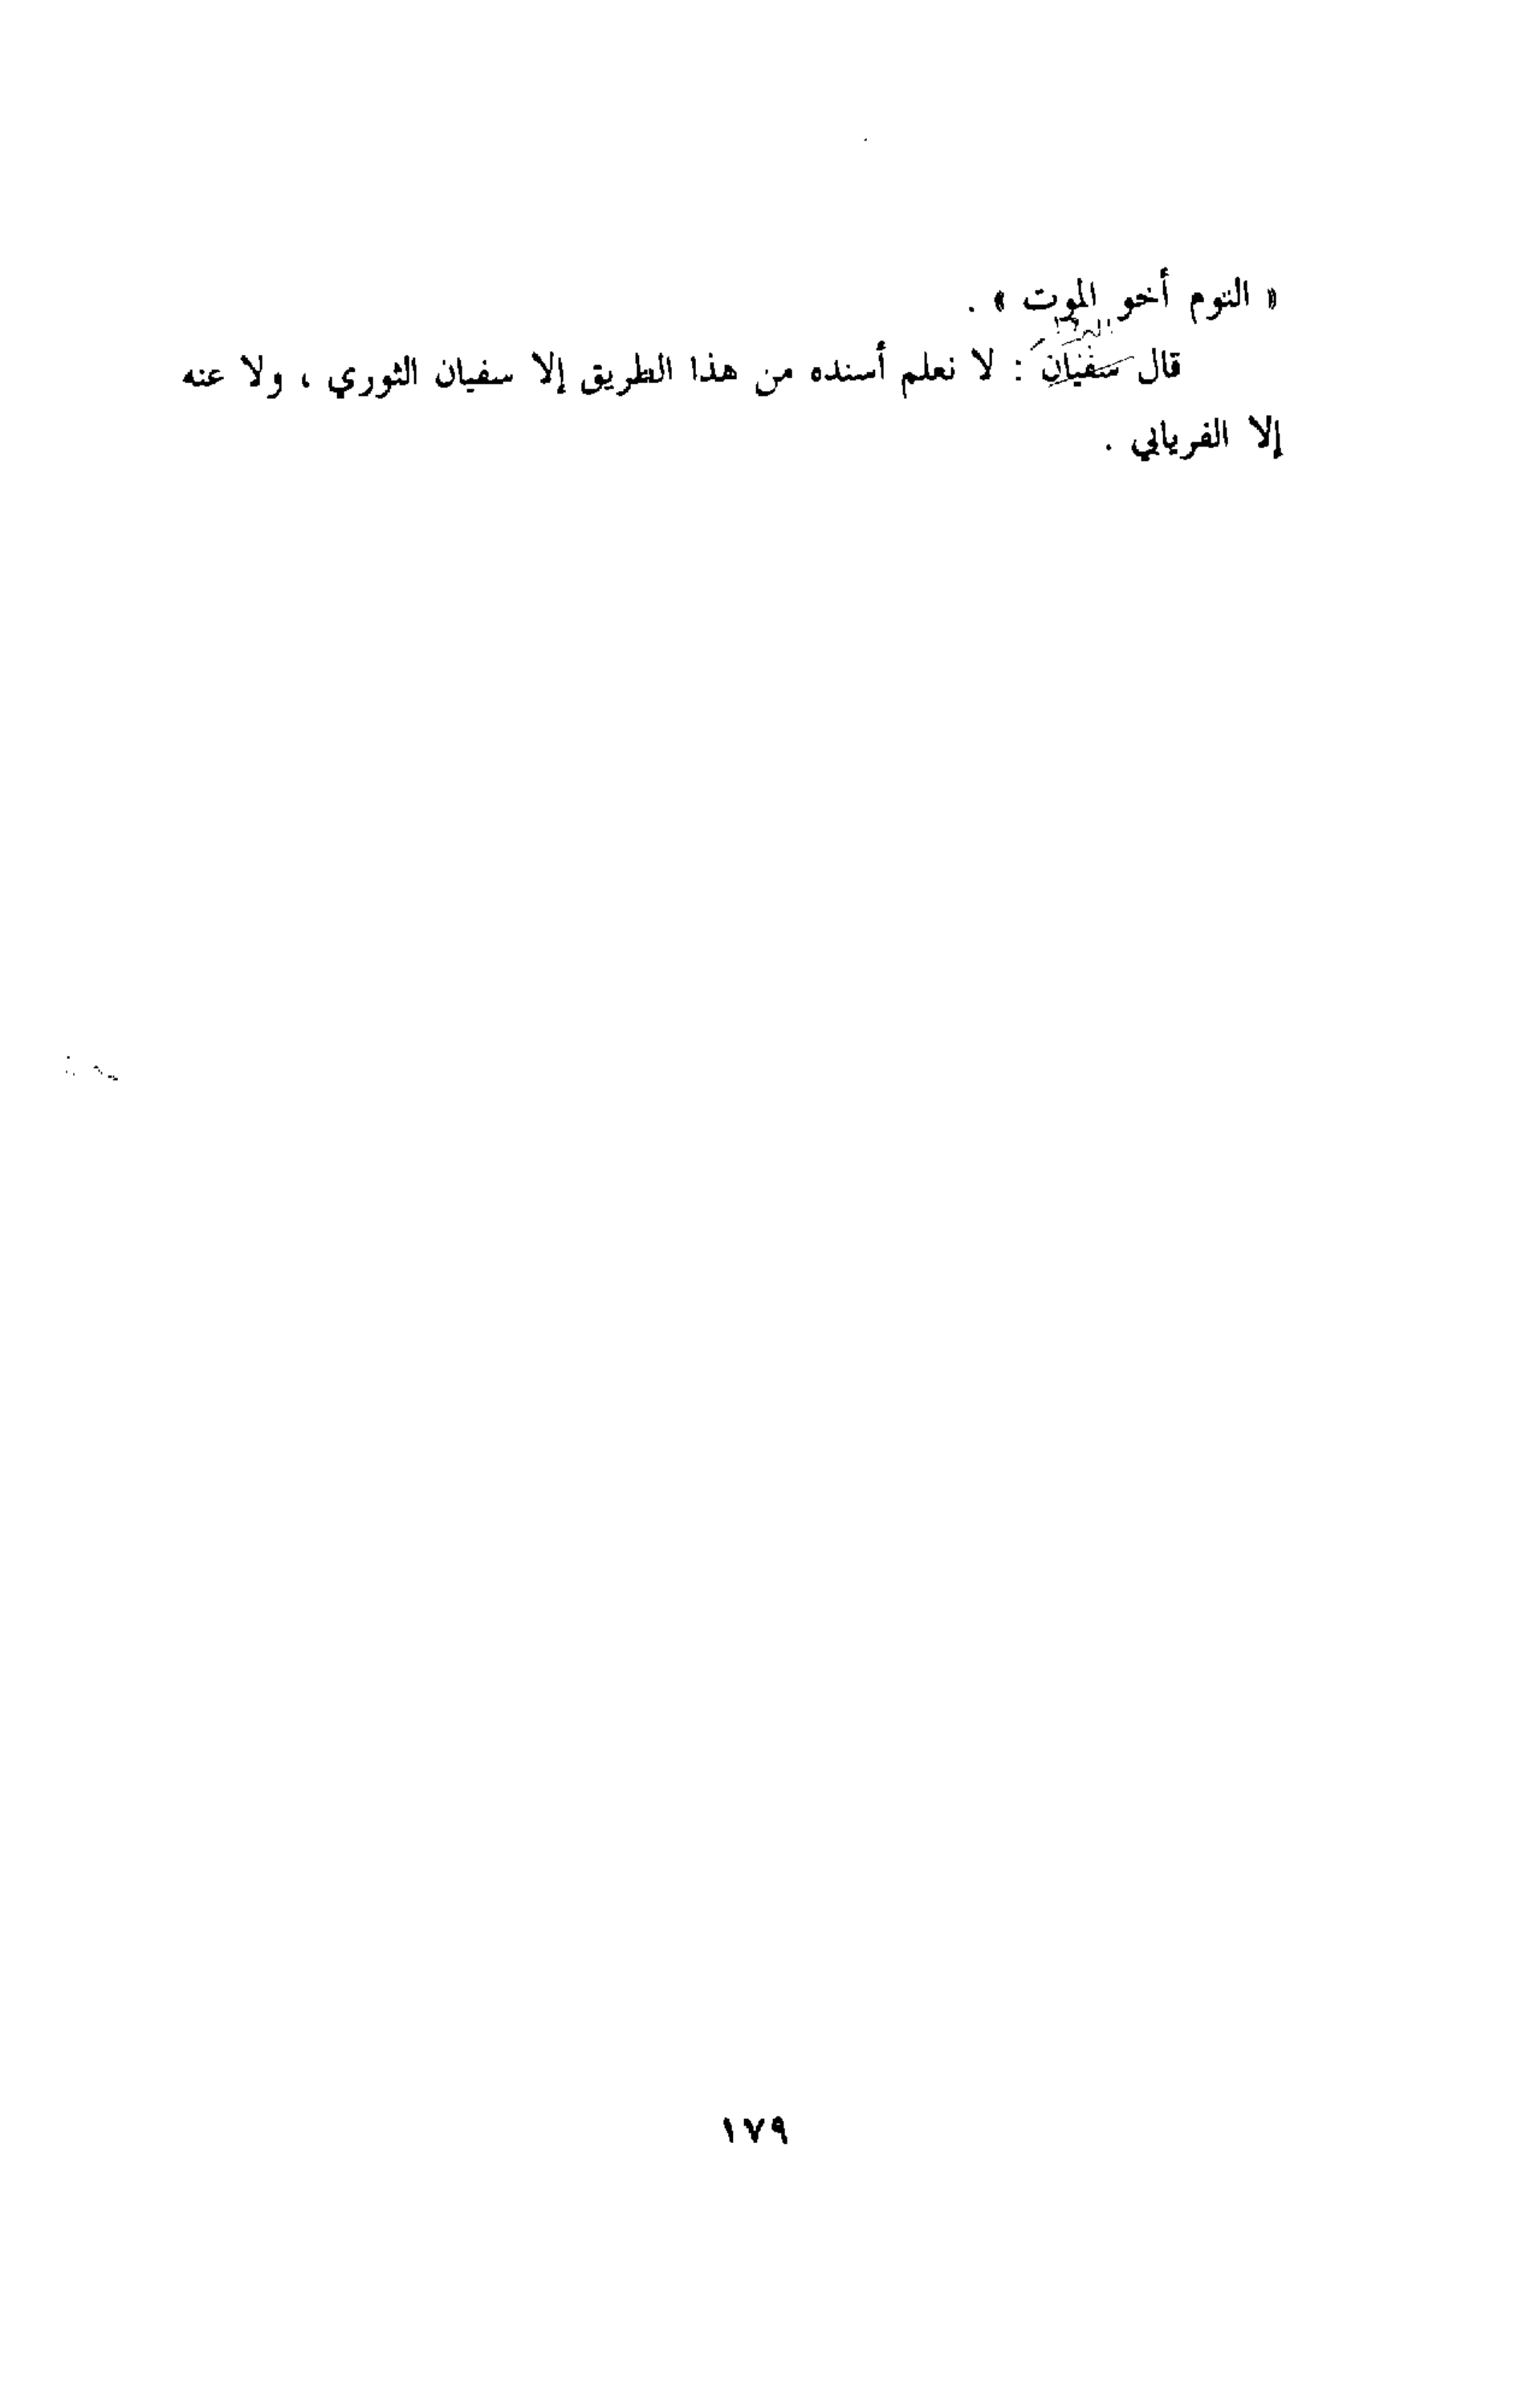 « النوم أخو الموت » .
قال سفيان : لا نعلم أسنده من هذا الطريق إلا سفيان الثوري ، ولا عنه
إلا الفريابي .
١٧٩